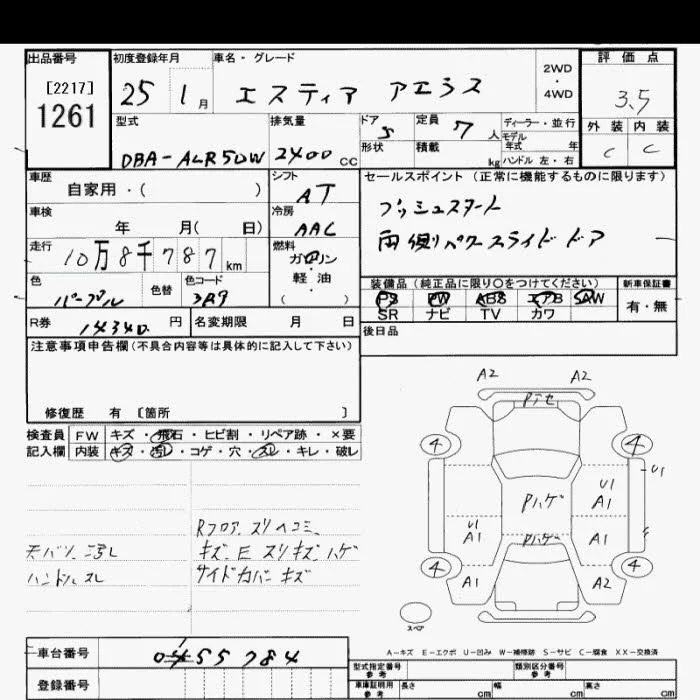 出品番号
[2217]
1261
初度登録年月
25 1月
車名・グレード
エスティマ アエラス
2WD
・
4WD
評価点
3.5
外装 内装
C C
型式
DBA-ACR50W
排気量
2400 cc
ドア
5
形状
定員
7人
積載
kg
ディーラー・並行
モデル
年式 年
ハンドル 左・右
車歴
自家用・( )
シフト
AT
セールスポイント (正常に機能するものに限ります)
プッシュスタート
両側パワースライドドア
車検
年 月( 日)
冷房
AAC
走行
10万8千787km
燃料
ガソリン
・
軽油
( )
色
パープル
色替
色コード
3R9
装備品 (純正品に限り○をつけてください)
PS PW ABS エアB AW
SR ナビ TV カワ
新車保証書
有・無
R券
14340円
名変期限 月 日
後日品
注意事項申告欄(不具合内容等は具体的に記入して下さい)
修復歴 有 [箇所 ]
検査員
記入欄
FW キズ・飛石・ヒビ割・リペア跡・×要
内装 キズ・汚レ・コゲ・穴・スレ・キレ・破レ
天バリ ヨゴレ
ハンドル スレ
Rフロア スリ ヘコミ
キズ、E スリキズ、ハゲ
サイドカバー キズ
A2 A2
Pテセ
4 4
U1
Pハゲ
U1
A1
U1
A1
Pハゲ
A1
4 4
A1 A2
スペア
A-キズ E-エクボ U-凹み W-補修跡 S-サビ C-腐食 XX-交換済
車台番号
0455784
登録番号
型式指定番号
参考
類別区分番号
参考
車庫証明用
参考
長さ cm
幅 cm
高さ cm